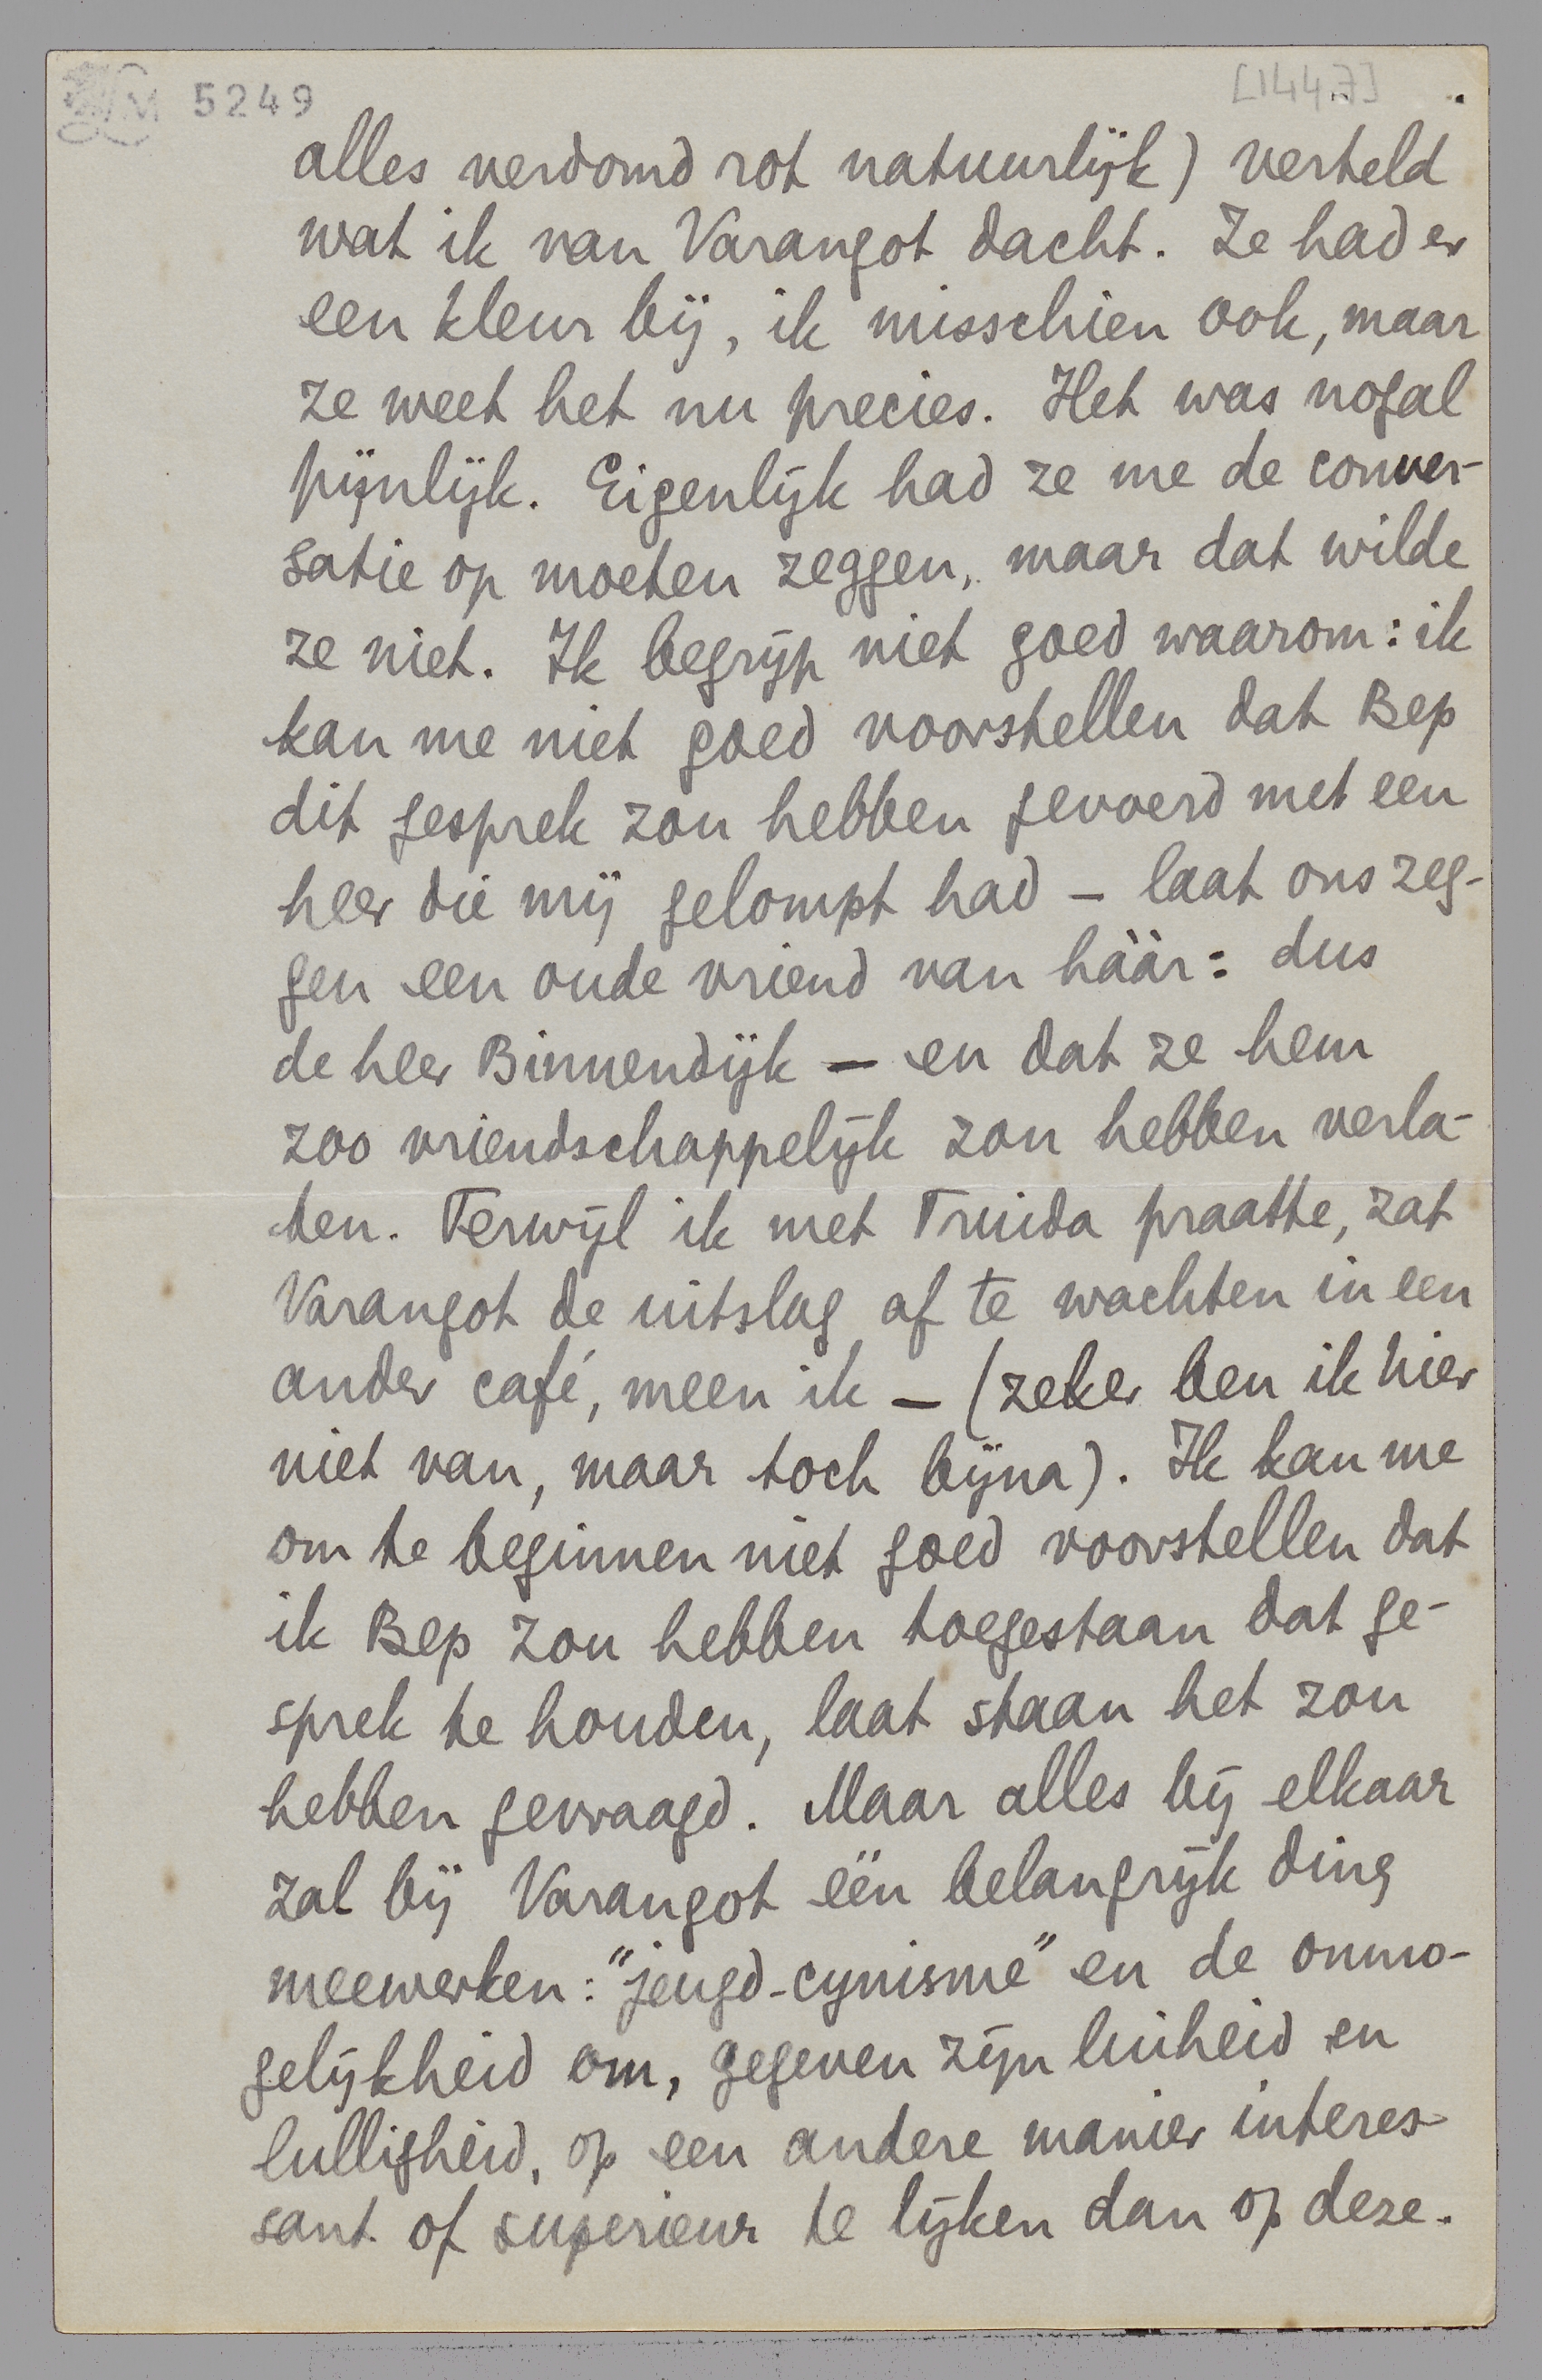 LM 5249
[1447]
alles verdomd rot natuurlijk) verteld
wat ik van Varangot dacht. Ze had er
een kleur bij, ik misschien ook, maar
ze weet het nu precies. Het was nogal
pijnlijk. Eigenlijk had ze me de conver-
satie op moeten zeggen, maar dat wilde
ze niet. Ik begrijp niet goed waarom: ik
kan me niet goed voorstellen dat Bep
dit gesprek zou hebben gevoerd met een
heer die mij gelompt had – laat ons zeg-
gen een oude vriend van háár: dus
de heer Binnendijk – en dat ze hem
zoo vriendschappelijk zou hebben verla-
ten. Terwijl ik met Truida praatte, zat
Varangot de uitslag af te wachten in een
ander café, meen ik – (zeker ben ik hier
niet van, maar toch bijna). Ik kan me
om te beginnen niet goed voorstellen dat
ik Bep zou hebben toegestaan dat ge-
sprek te houden, laat staan het zou
hebben gevraagd. Maar alles bij elkaar
zal bij Varangot één belangrijk ding
meewerken: "jeugd-cynisme" en de onmo-
gelijkheid om, gegeven zijn luiheid en
lulligheid, op een andere manier interes-
sant of superieur te lijken dan op deze.